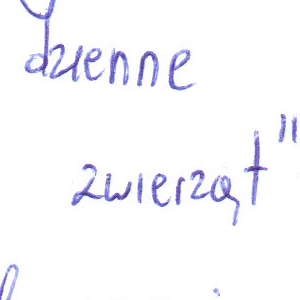 dzienne
zwierząt"